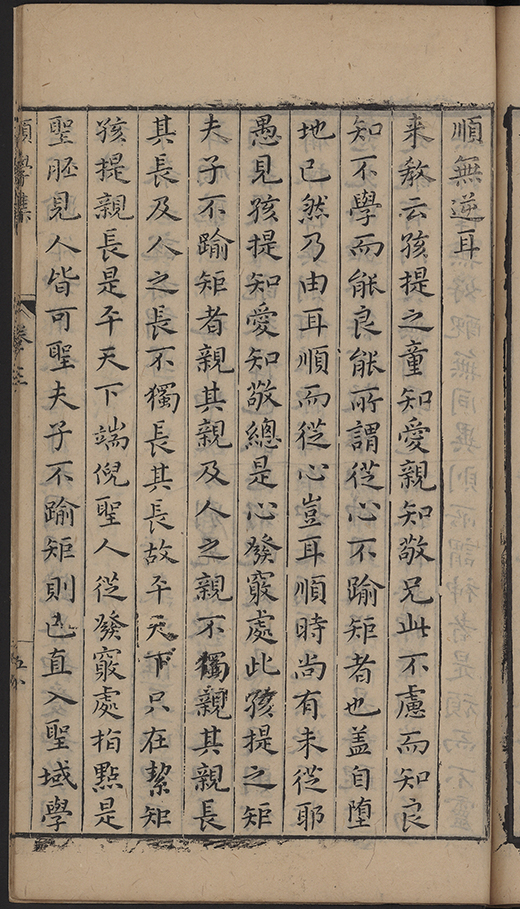 順無逆耳
来教云孩提之童知愛親知敬兄此不慮而知良
知不學而能良能所謂從心不踰矩者也盖自墮
地已然乃由耳順而從心豈耳順時尚有未從耶
愚見孩提知愛知敬總是心發竅處此孩提之矩
夫子不踰矩者親其親及人之親不獨親其親長
其長及人之長不獨長其長故平天下只在絜矩
孩提親長是平天下端倪聖人從發竅處指點是
聖胚見人皆可聖夫子不踰矩則已直入聖域學